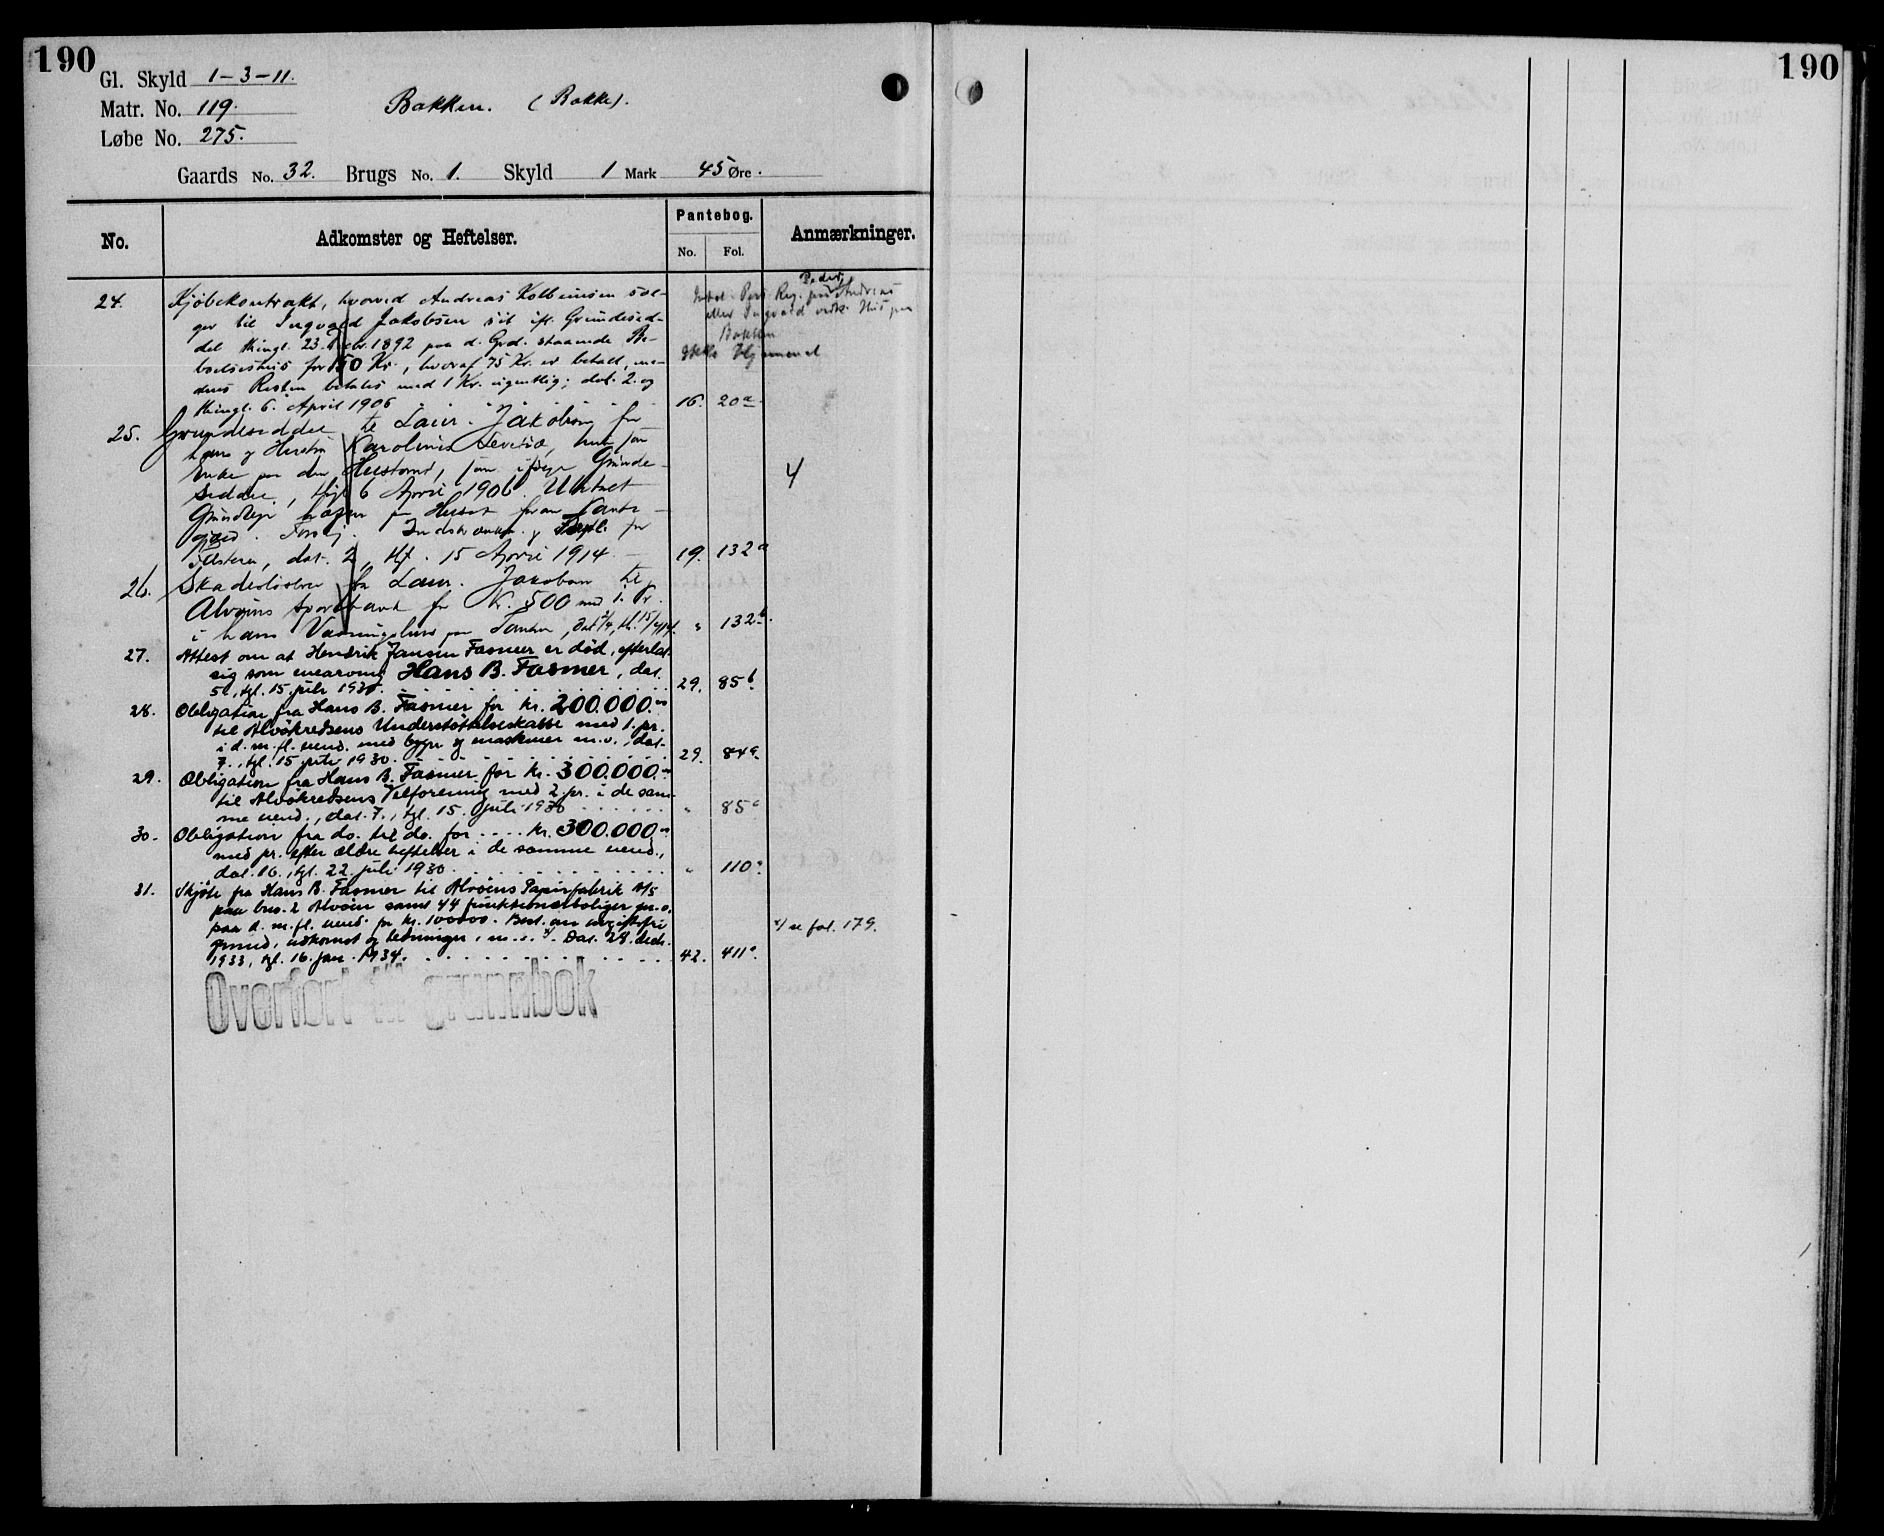 190
190
Gl. Skyld 1-3-11.
Matr. No. 119.
Løbe No. 275.
Bakken. (Bakke).
Gaards No. 32. Brugs No. 1. Skyld 1 Mark 45 Øre.
No. Adkomster og Heftelser. Pantebog. Anmærkninger.
No. Fol.
24. Kjøbekontrakt, hvorved Andreas Kolbeinsen sæl-
ger til Ingvald Jakobsen sit ifl. Grundesed-
del thingl. 23. 1892 paa d. Grd. staaende Be-
boelseshus for 150 Kr., hvoraf 75 Kr. er betalt, me-
dens Resten betales med 1 Kr. ugentlig; dat. 2. og
thingl. 6. April 1906 16. 20a
25. Grundeseddel til Laur. Jakobsen for
ham og Hustru Karoline
Enke paa den Hustomt, som ifølge Grunde-
seddel, thgl 6 April 1906.
Grundleje Huset foran Pante-
gjæld.
Tilstera, dat. 2, thgl. 15 April 1914 19. 132a
4
26. Skadesløsbrev fra Laur. Jakobsen til
Alvøens Sparebank for Kr. 500 med 1. Pr.
i hans Vaaningshus paa Tomten, dat 2/4, th. 15/4 14. " 132b.
27. Attest om at Hendrik Jansen Fasmer er død, efterlat
sig som enearving Hans B. Fasmer, dat.
5., tgl. 15. juli 1930. 29. 85b.
28. Obligation fra Hans B. Fasmer for kr. 200.000.00
til Alvökredsens Understøttelseskasse med 1. pr.
i d. m. fl. eiend. med bygn og maskiner m.v., dat.
7., tgl. 15. juli 1930. 29. 84a.
29. Obligation fra Hans B. Fasmer for kr. 300.000.00
til Alvökredsens Velforening med 2. pr. i de sam-
me eiend., dat. 7., tgl. 15. juli 1930 " 85a
30. Obligation fra do. til do. for .... kr. 300.000.00
med pr. efter ældre heftelser i de samme eiend.,
dat. 16., tgl. 22. juli 1930. " 110a.
31. Skjøte fra Hans B. Fasmer til Alvøens Papirfabrik A/S
paa bns. 2 Alvøen samt 44 funktionærboliger m.v.
paa d. m. fl. eiend. for kr. 100000. Best. om avgiftsfri
grund, adkomst og ledninger, m.v. x/. Dat. 28. decb.
1933, tgl. 16. jan. 1934. 42. 411a.
x/ se fol. 179.
Overført til grunnbok